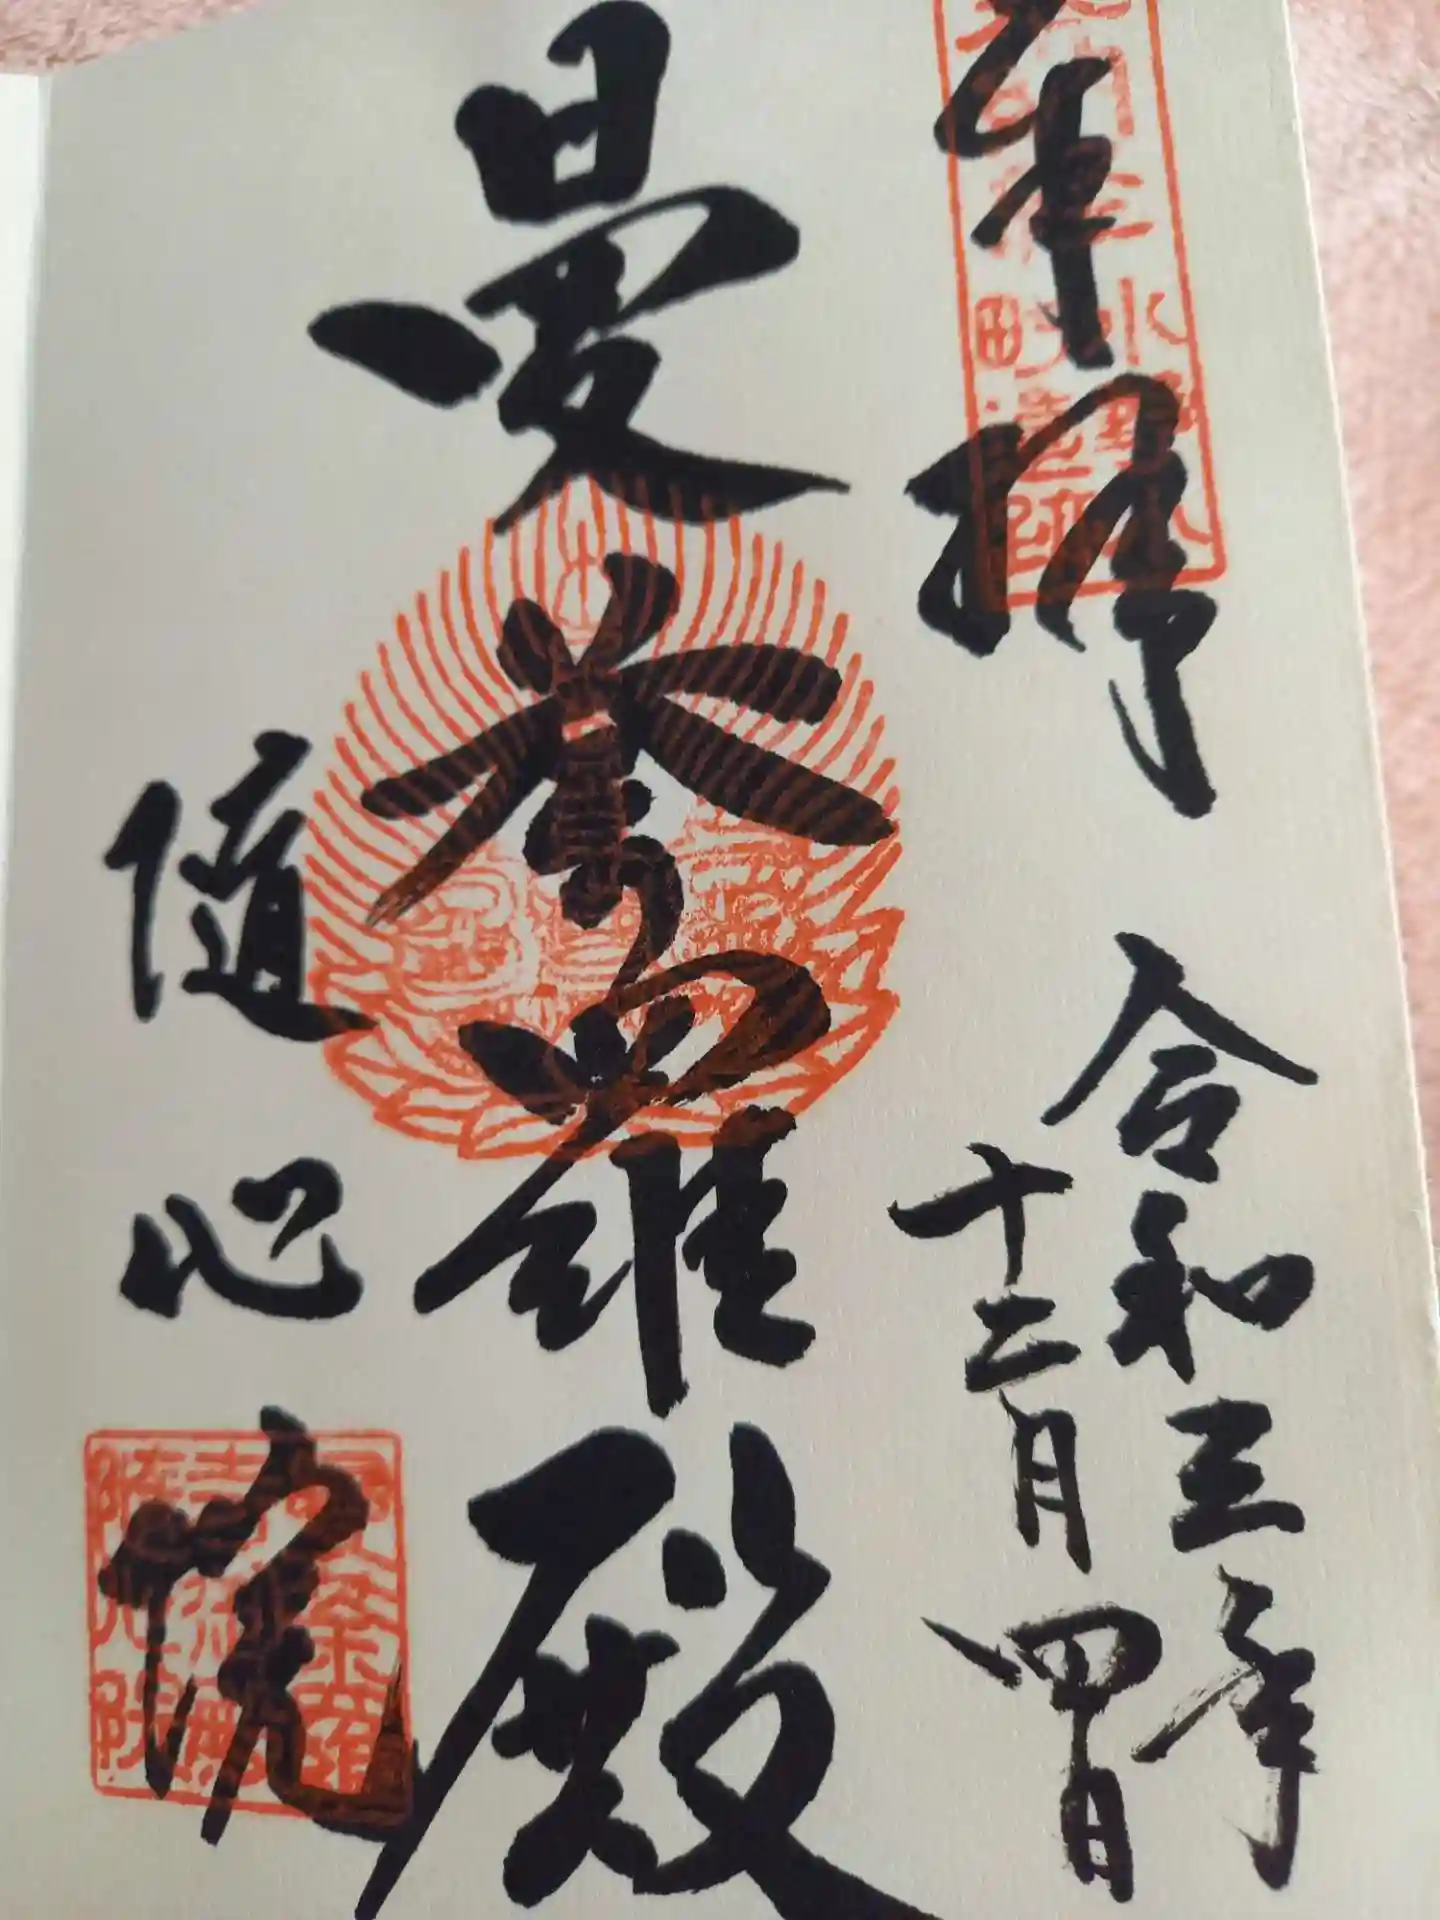 奉拝
令和三年
十二月四日
曼荼羅殿
随心院